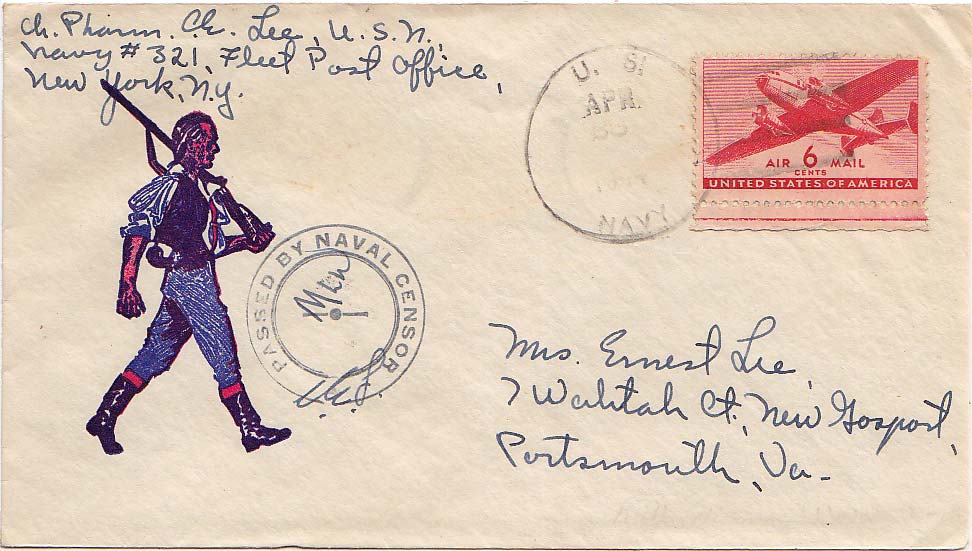 Ch. Pharm. Ck. Lee, U.S.N.
Navy # 321, Fleet Post Office,
New York, N.Y.
U. S.
APR.
NAVY
AIR 6 MAIL
CENTS
UNITED STATES OF AMERICA
PASSED BY NAVAL CENSOR
Mrs. Ernest Lee,
7 Wahtah Ct., New Gosport,
Portsmouth, Va-